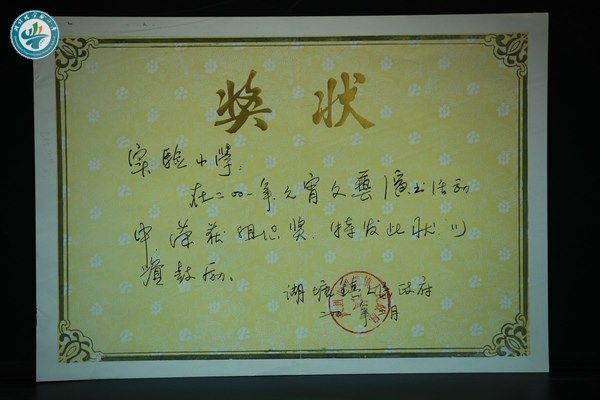 奖状
实验小学:
在二〇〇一年元宵文艺演出活动
中,荣获组织奖.特发此状以
资鼓励.
湖塘镇人民政府
二〇〇一年二月